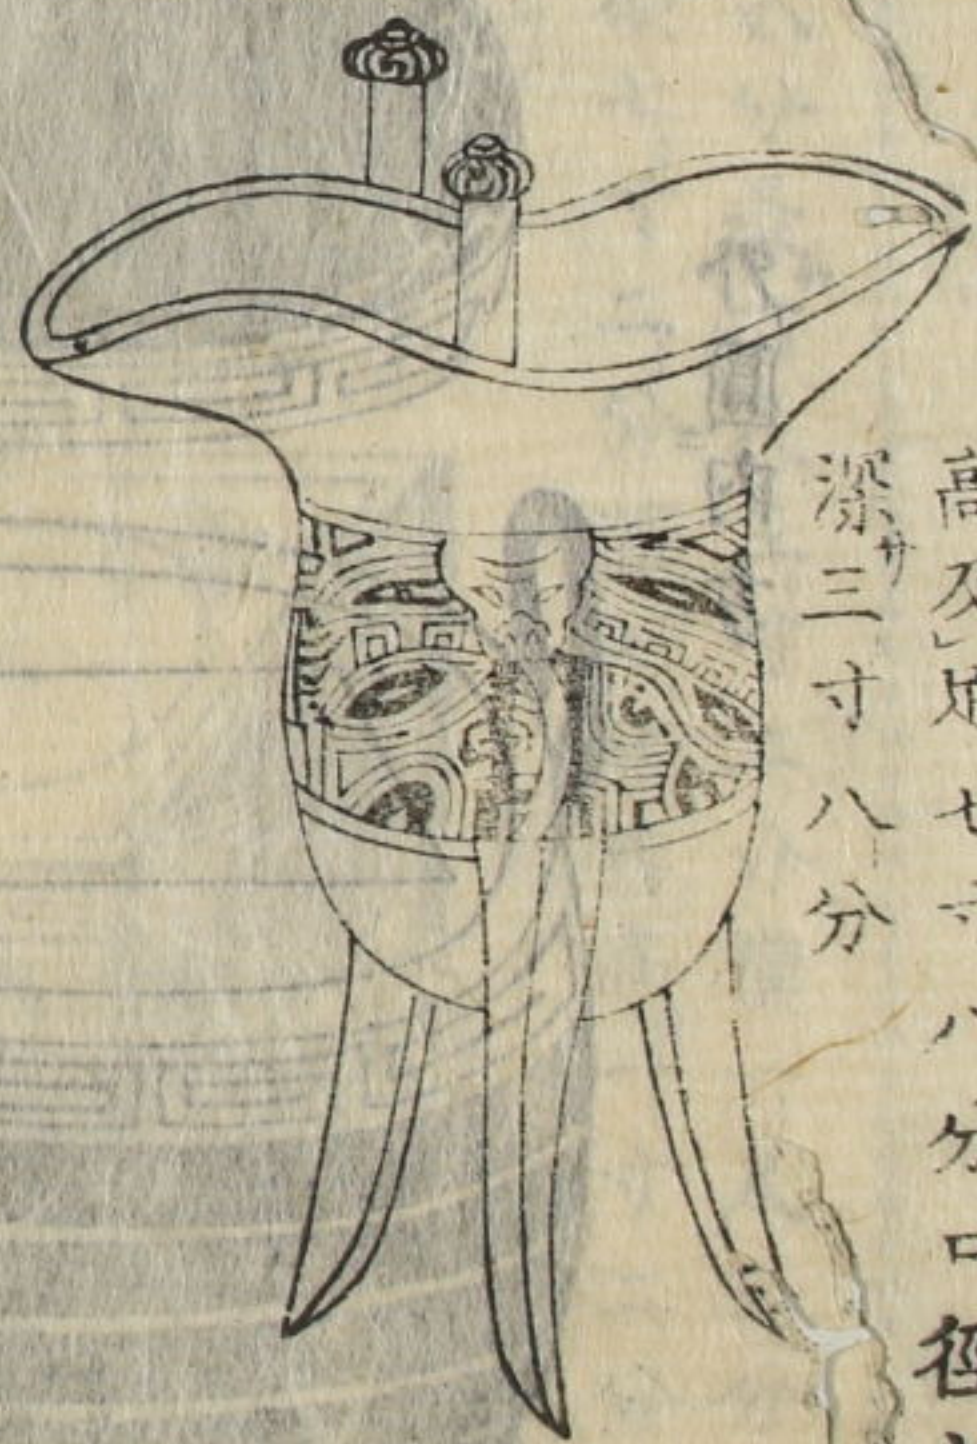 高及足七寸八分口徑
深サ三寸八分